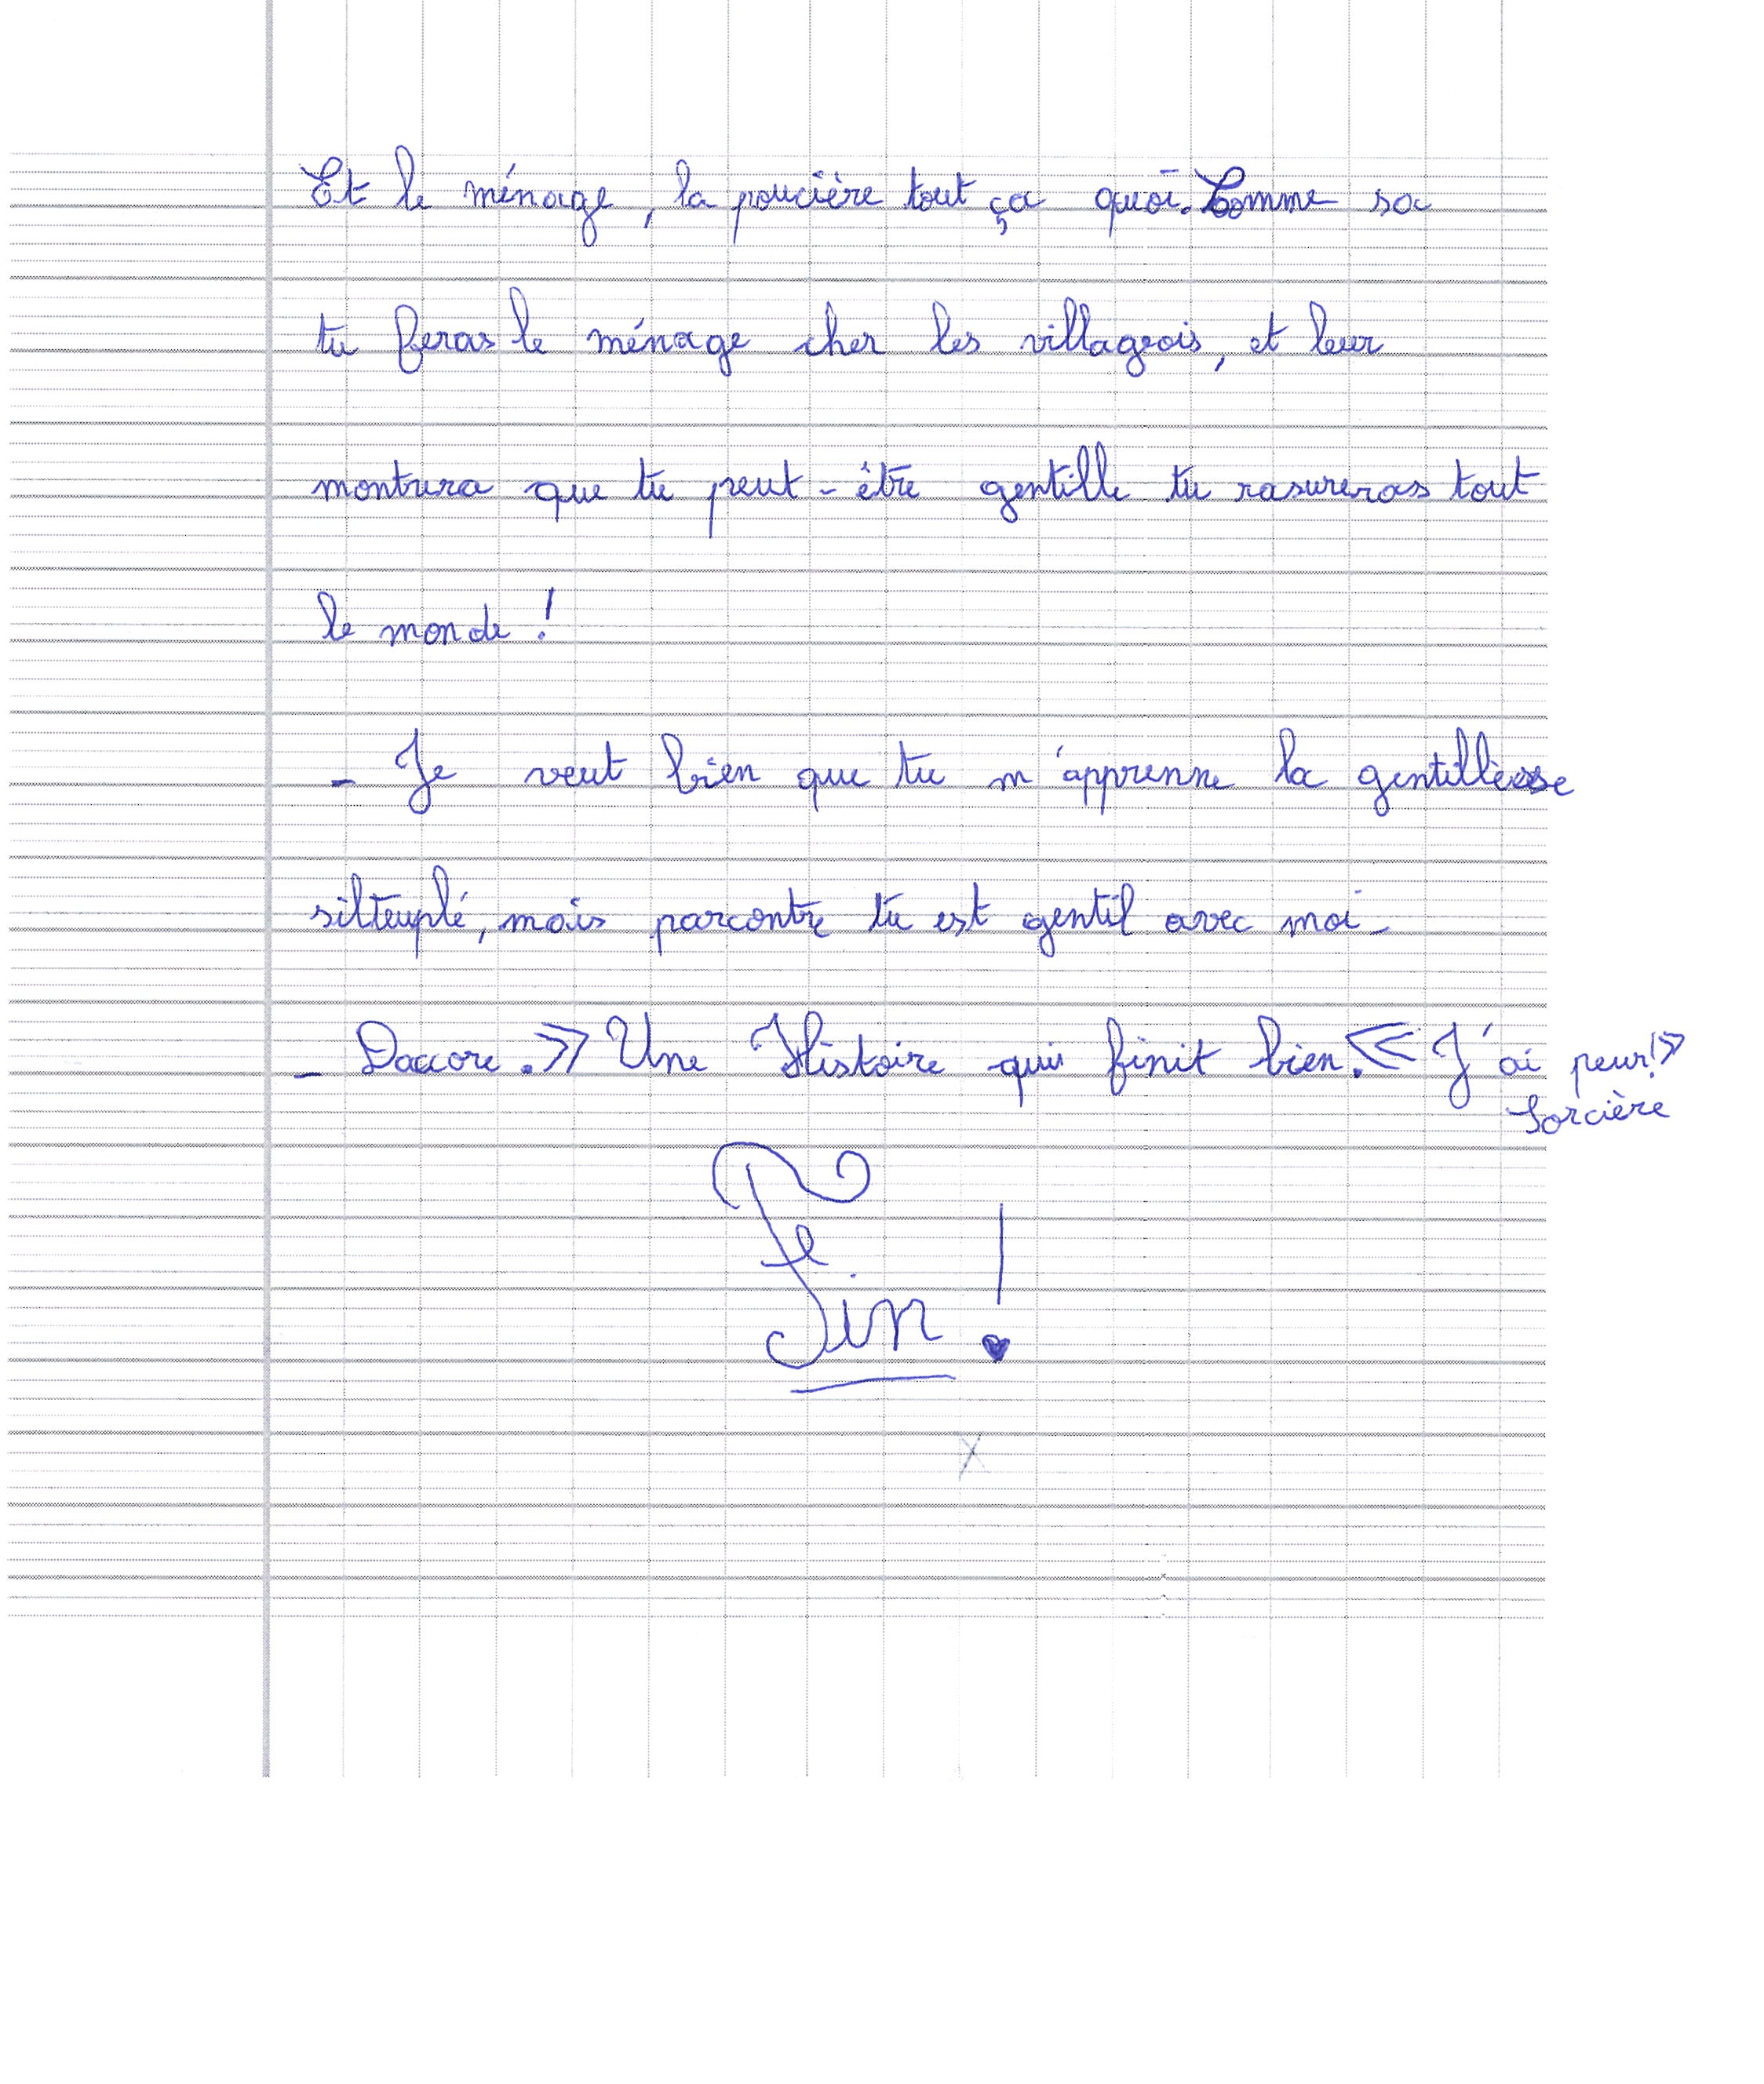 Et le ménage, la poucière tout ça quoi. Comme sa
tu feras le ménage cher les villageois, et leur
montrera que tu peut-être gentille tu rasureras tout
le monde !
- Je veut bien que tu m'apprenne la gentillesse
silteuplé, mais parcontre tu est gentil avec moi-
- Daccore.» Une Histoire qui finit bien.« J'ai peur!»
Sorcière
Fin !